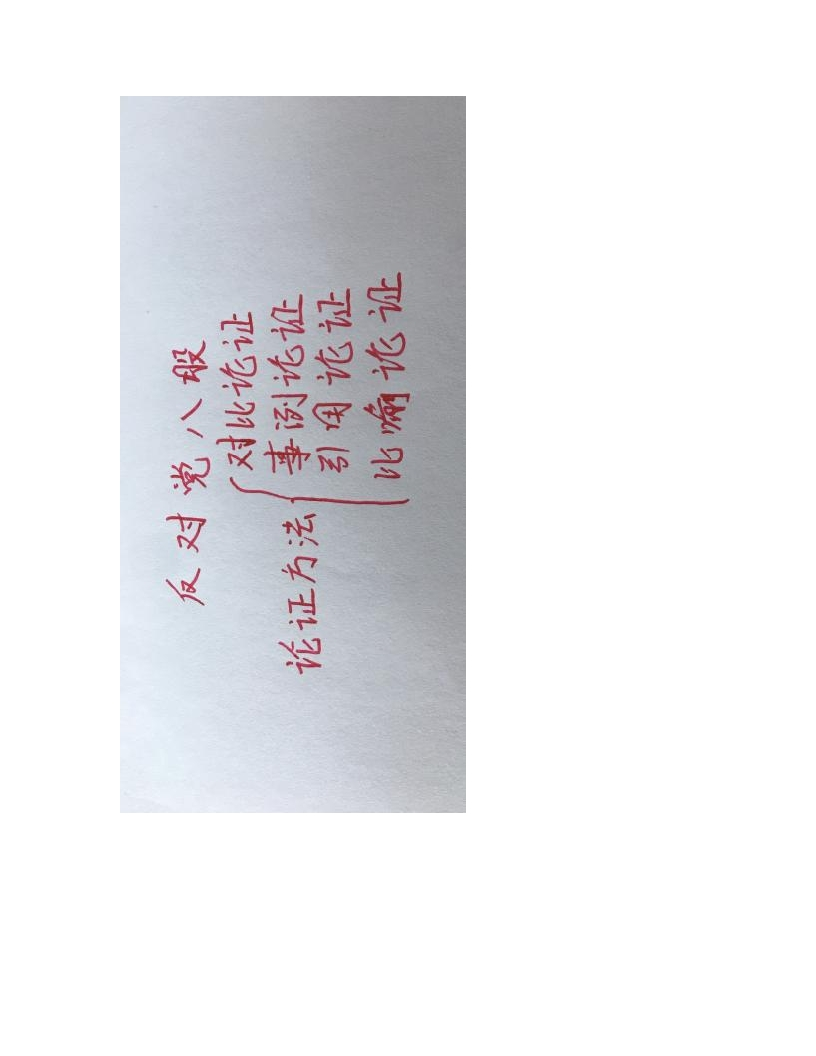 反对党八股
对比论证
事例论证
论证方法
引用论证
比喻论证